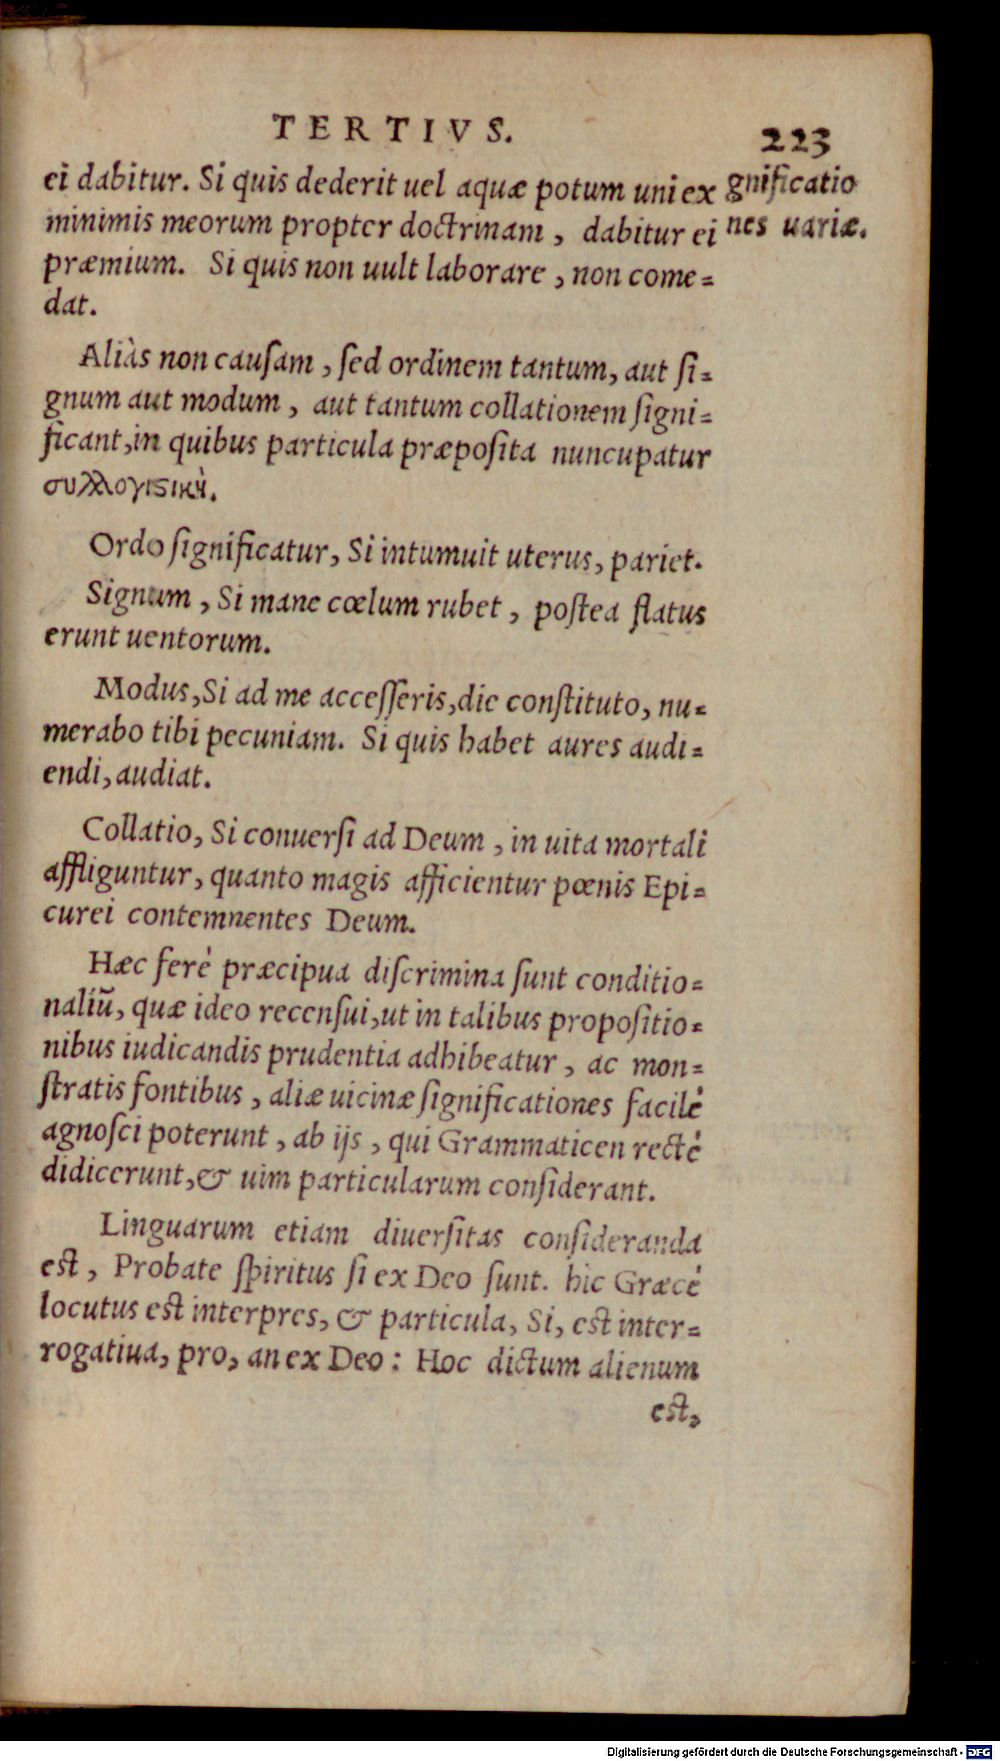 TERTIVS.
223
ei dabitur. Si quis dederit uel aquæ potum uni ex
minimis meorum propter doctrinam, dabitur ei
præmium. Si quis non uult laborare, non come=
dat.
gnificatio
nes uariæ.
Aliàs non causam, sed ordinem tantum, aut si=
gnum aut modum, aut tantum collationem signi=
ficant, in quibus particula præposita nuncupatur
συλλογιϛικὴ.
Ordo significatur, Si intumuit uterus, pariet.
Signum, Si mane cœlum rubet, postea flatus
erunt uentorum.
Modus, Si ad me accesseris, die constituto, nu=
merabo tibi pecuniam. Si quis habet aures audi=
endi, audiat.
Collatio, Si conuersi ad Deum, in uita mortali
affliguntur, quanto magis afficientur pœnis Epi=
curei contemnentes Deum.
Hæc ferè præcipua discrimina sunt conditio=
naliū, quæ ideo recensui, ut in talibus propositio=
nibus iudicandis prudentia adhibeatur, ac mon=
stratis fontibus, aliæ uicinæ significationes facilè
agnosci poterunt, ab ijs, qui Grammaticen rectè
didicerunt, & uim particularum considerant.
Linguarum etiam diuersitas consideranda
est, Probate spiritus si ex Deo sunt. hic Græcè
locutus est interpres, & particula, Si, est inter=
rogatiua, pro, an ex Deo: Hoc dictum alienum
est,
Digitalisierung gefördert durch die Deutsche Forschungsgemeinschaft - DFG